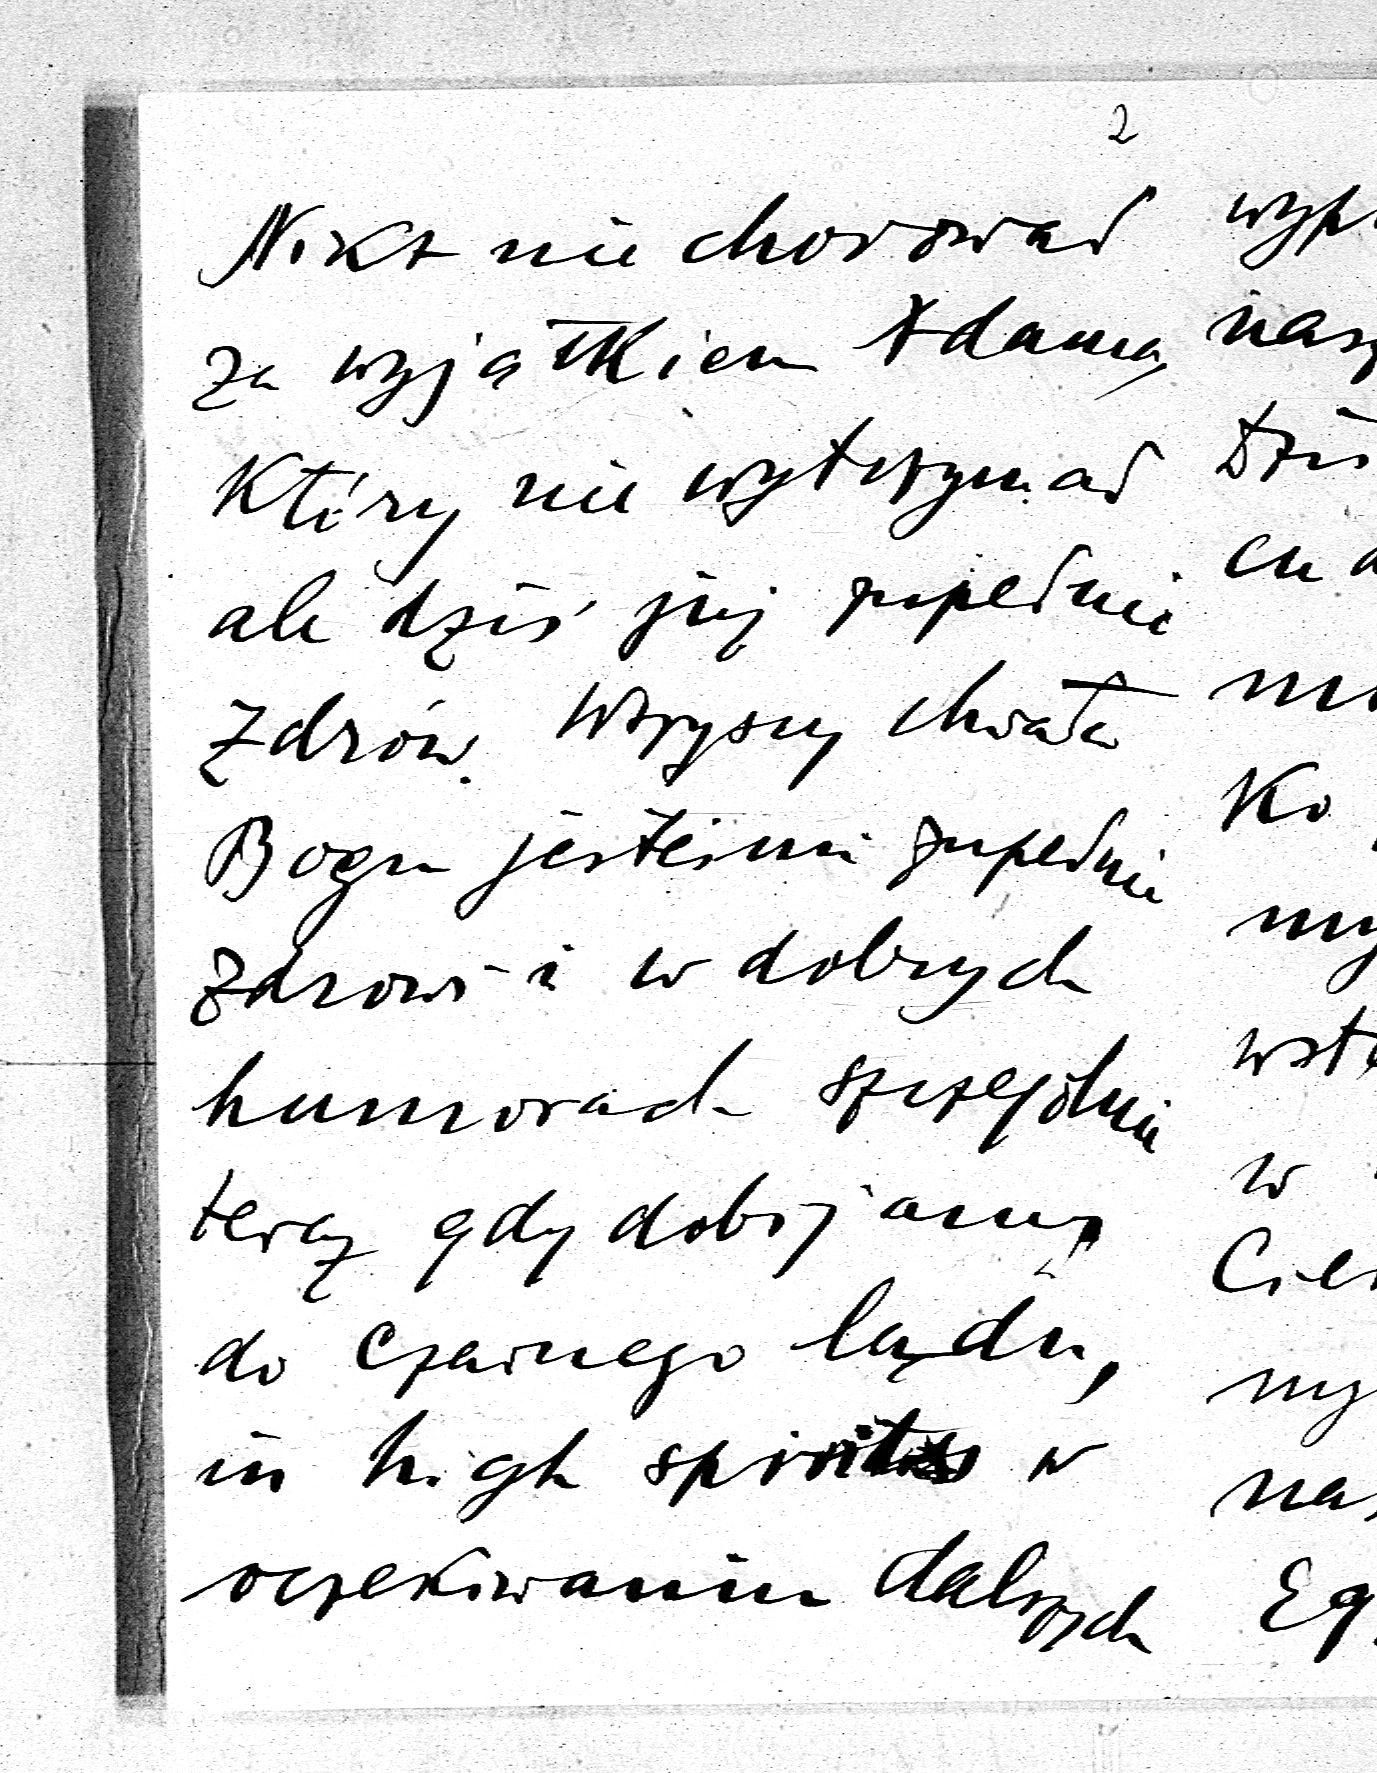 2
Nikt nie chorował
za wyjątkiem Adama,
który nie wytrzymał
ale dziś już zupełnie
zdrów. Wszyscy chwała
Bogu jesteśmy zupełnie
zdrowi i w dobrych
humorach szczególnie
teraz gdy dobijamy
do czarnego lądu,
in high spirits w
oczekiwaniu dalszych